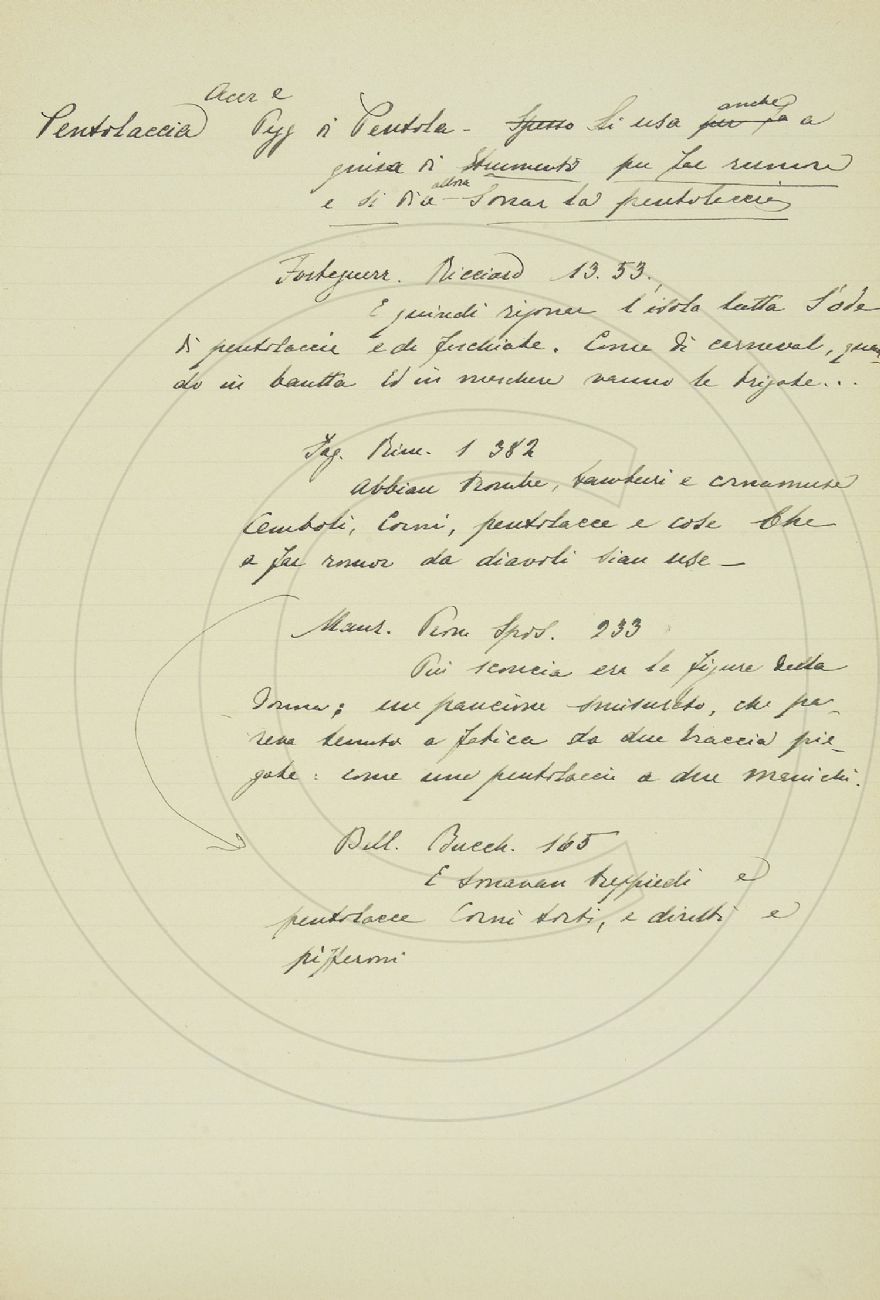 Accr e
Pentolaccia Pegg di Pentola - Spesso Si usa per fa anche a
guisa di Strumento per far rumore
e si dice allora Sonar la pentolaccia
Forteguerr. Ricciard 13. 53.
E quindi risonar l'isola tutta S'ode
di pentolaccie e di fischiate. Come di carneval, quan
do in bautta Ed in maschera vanno le brigate...
Fag. Rime. 1 382
Abbian trombe, tamburi e cornamuse
Cemboli, Corni, pentolacce e cose Che
a far romor da diavoli sian use —
Manz. Prom Spos. 233
Più sconcia era la figura della
donna; un pancione smisurato, che pa-
reva tenuto a fatica da due braccia pie-
gate: come una pentolaccia a due manichi.
Bell. Bucch. 165
E sonavan treppiedi e
pentolacce Corni torti, e diritti e
pifferoni